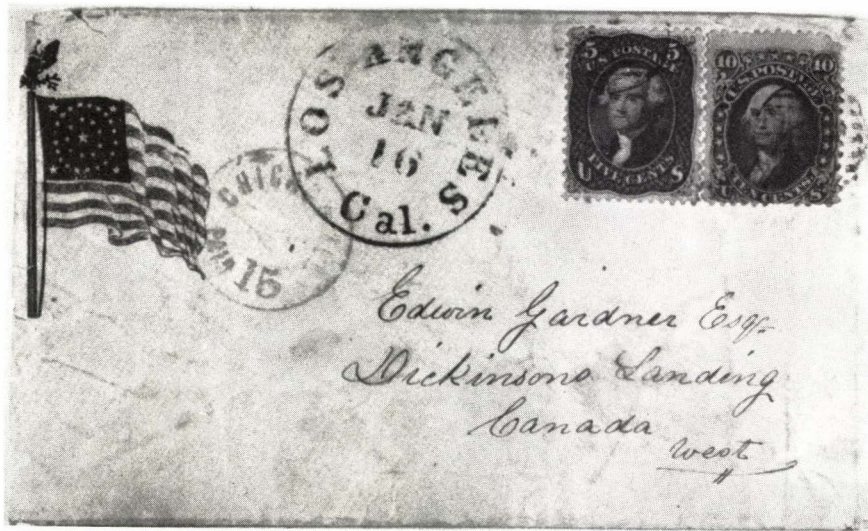 LOS ANGELES
JAN
16
Cal.
CHIC
15
5 5
U.S. POSTAGE
FIVE CENTS
U S
10 10
U.S. POSTAGE
TEN CENTS
U S
Edwin Gardner Esqr
Dickinsons Landing
Canada
West